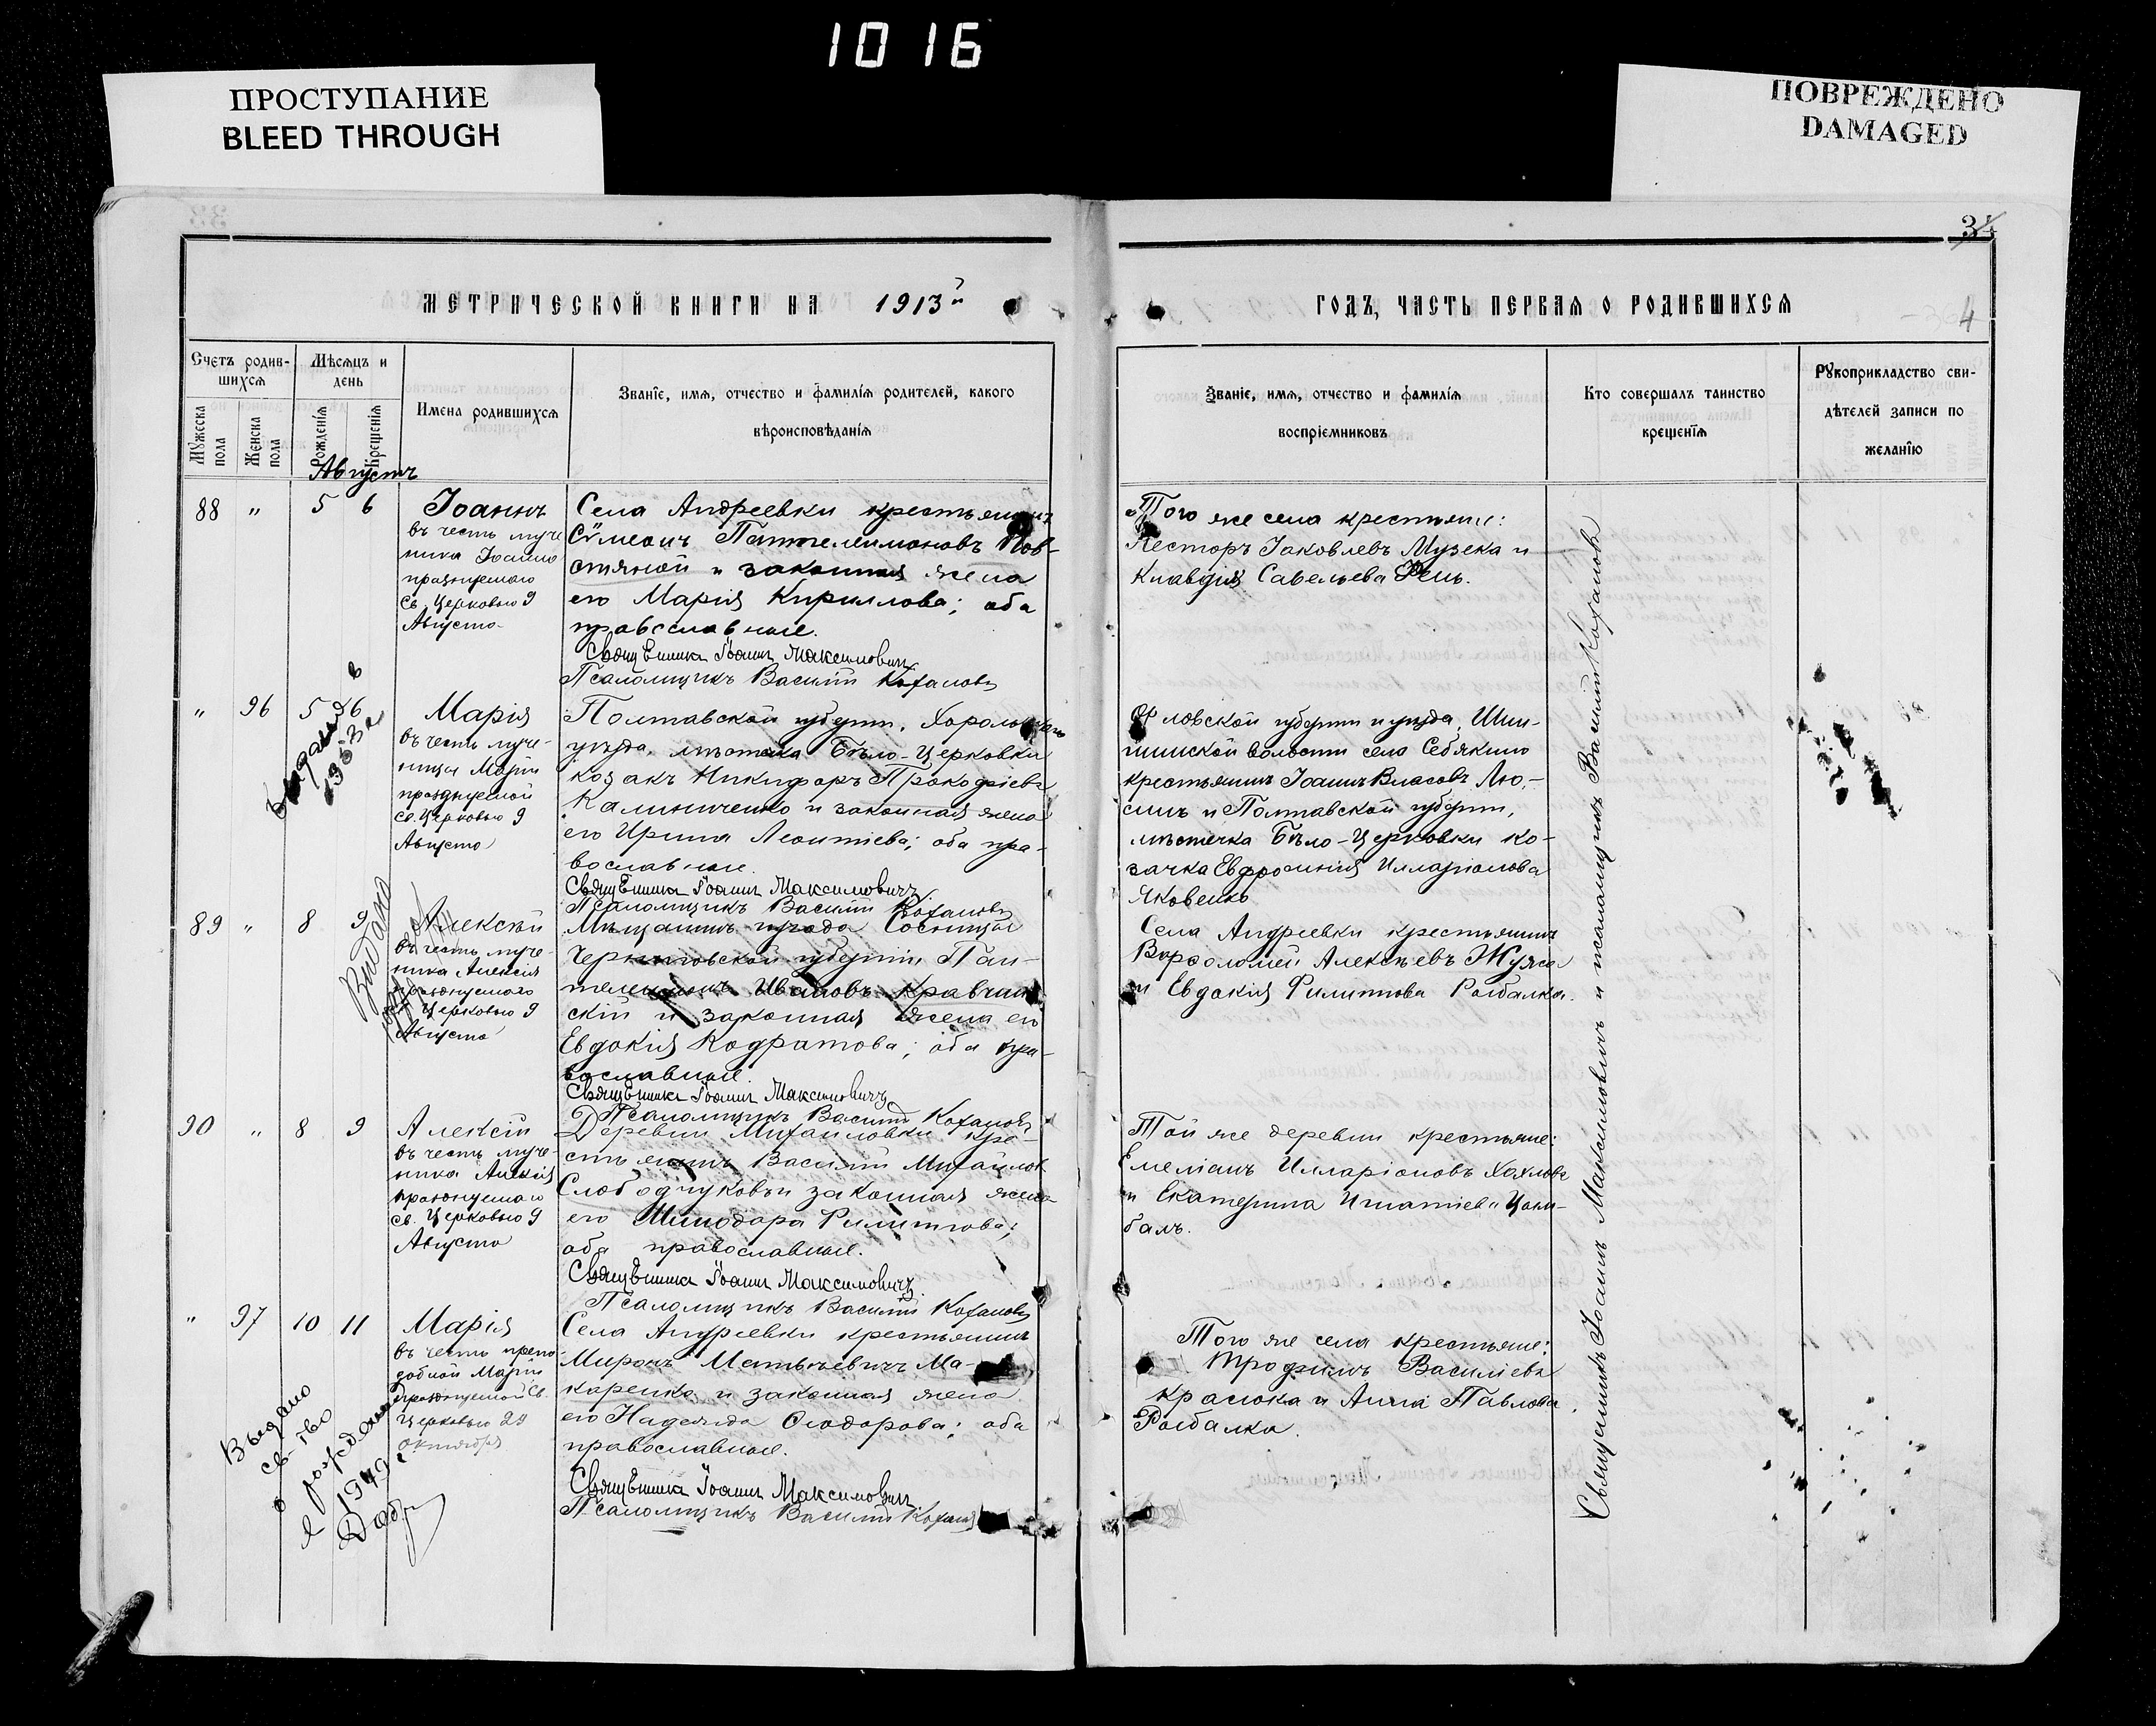 1016
ПРОСТУПАНИЕ
BLEED THROUGH
ПОВРЕЖДЕНО
DAMAGED
34
МЕТРИЧЕСКОЙ КНИГИ НА 1913й
ГОДЪ, ЧАСТЬ ПЕРВАЯ О РОДИВШИХСЯ
4
Счетъ родив-
шихся
Мужеска пола
Женска пола
Мѣсяцъ и
день
Рожденія
Крещенія
Имена родившихся
Званіе, имя, отчество и фамилія родителей, какого
вѣроисповѣданія
Званіе, имя, отчество и фамилія
воспріемниковъ
Кто совершалъ таинство
крещенія
Рукоприкладство сви-
дѣтелей записи по
желанію
Августъ
88 " 5 6
Іоаннъ
въ честь муче
ника Іоанна
празнуемаго
Св. Церковью 9
Августа
Села Андреевки крестьянинъ
Сѵмеонъ Пантелеимоновъ Пов-
стяной и законная жена
его Марія Кириллова; оба
православные.
Священникъ Іоаннъ Максимовичъ
Псаломщикъ Василій Кохановъ
Того же села крестьяне:
Несторъ Іаковлевъ Музека и
Клавдія Савельева Рень.
" 96 5 6
Марія
въ честь муче-
ницы Маріи
празднуемой
св. Церковью 9
Августа
Полтавской губерніи, Хорольскаго
уѣзда, мѣстечка Бѣло-Церковки
козакъ Никифоръ Прокофіевъ
Калиниченко и законная жена
его Ирина Леонтіева; оба пра-
вославные.
Священникъ Іоаннъ Максимовичъ
Псаломщикъ Василій Кохановъ
Орловской губерніи и уѣзда,
волости села Себякино
крестьянинъ Іоаннъ Власовъ Лю-
синъ и Полтавской губерніи,
мѣстечка Бѣло-Церковки ко-
зачка Евфросинія Илларіонова
Яковенко
89 " 8 9
Видано
Алексѣй
въ честь муче-
ника Алексія
празднуемаго
св. Церковью 9
Августа
Мѣщанинъ города Сосницы
Черниговской губерніи Пан-
телеимонъ Ивановъ Кравчин-
скій и законная жена его
Евдокія Кодратова; оба пра-
вославные.
Священникъ Іоаннъ Максимовичъ
Псаломщикъ Василій Кохановъ
Села Андреевки крестьянинъ
Варфоломей Алексѣевъ Жужа
и Евдокія Филиппова Рыбалка.
90 " 8 9
Алексій
въ честь муче-
ника Алексія
празднуемаго
св. Церковью 9
Августа
Деревни Михайловки кре-
стьянинъ Василій Михайловъ
Слободчуковъ и законная жена
его Минодора Филиппова;
оба православные.
Священникъ Іоаннъ Максимовичъ
Псаломщикъ Василій Кохановъ
Той же деревни крестьяне:
Емеліанъ Илларіоновъ Хохловъ
и Екатерина Игнатіева Цим-
балъ.
" 97 10 11
Марія
въ честь препо
добной Маріи
празднуемой Св.
Церковью 29
октября
Села Андреевки крестьянинъ
Миронъ Матвѣевичъ Ма-
каренко и законная жена
его Надежда Ѳеодорова; оба
православные.
Священникъ Іоаннъ Максимовичъ
Псаломщикъ Василій Кохановъ
Того же села крестьяне:
Трофимъ Василіевъ
Красюка и Анна Павлова
Рыбалка.
Выдано
св-тво
о рождении
1949 г
Священникъ Іоаннъ Максимовичъ и псаломщикъ Василій Кохановъ